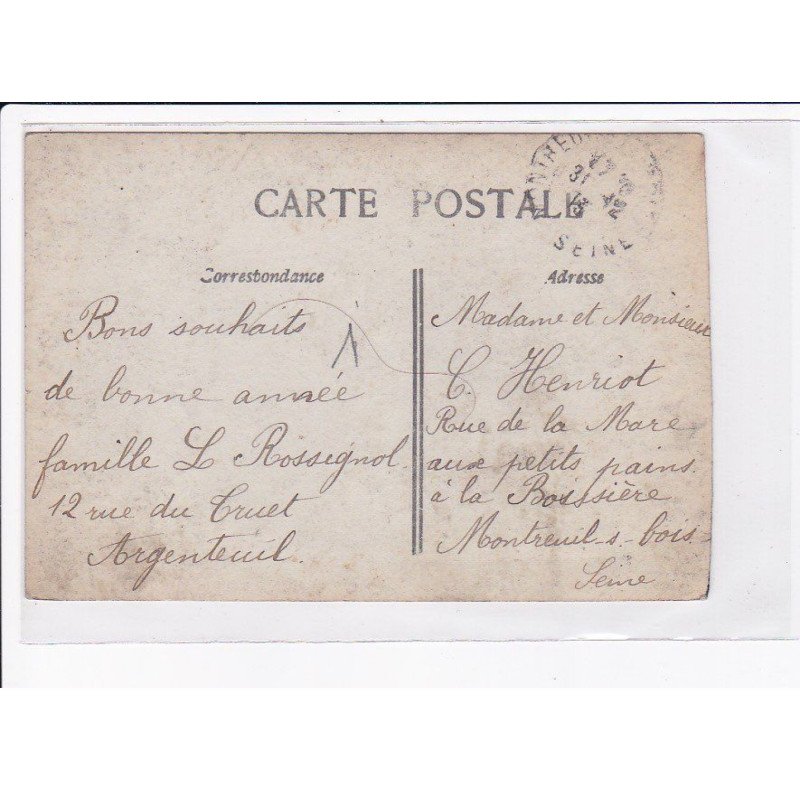 CARTE POSTALE
Correspondance
Bons souhaits
de bonne année
famille L Rossignol
12 rue du Cruet
Argenteuil.
Adresse
Madame et Monsieur
C. Henriot
Rue de la Mare
aux petits pains
à la Boissière
Montreuil-s-bois-
Seine
31
SEINE